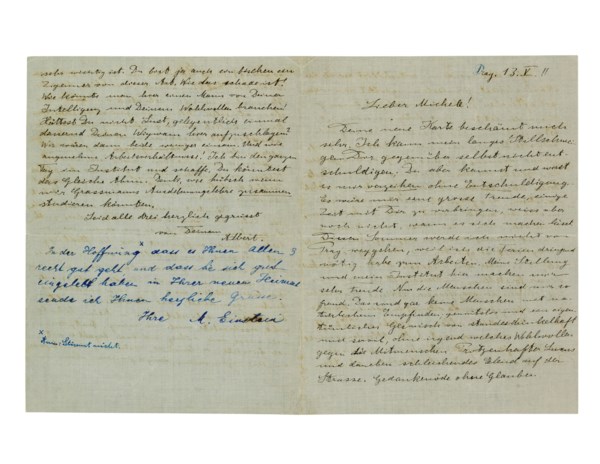 sehr wenig ist. Du bist ja auch ein bischen ein
Zigeuner von dieser Art. Wie das schade ist!
Wie könnte man hier einen Mann von Deiner
Intelligenz und Deinem Wohlwollen brauchen!
Hättest Du nicht Lust, gelegentlich einmal
dauernd Deinen Wigwam hier aufzuschlagen?
Wir wären dann beide weniger einsam. Und wie
angenehme Arbeitsverhältnisse! Ich bin den ganzen
Tag im Institut und schaffe. Du könntest
das Gleiche thun. Denk, wie hübsch wenn
wir Grassmanns Ausdehnungslehre zusammen
studieren könnten.
Seid alle drei herzlich gegrüsst
von Deinem
Albert.
In der Hoffnung x dass es Ihnen Allen 3
recht gut geht und dass Sie sich gut
eingelebt haben in Ihrer neuen Heimat
sende ich Ihnen herzliche Grüsse.
Ihre M. Einstein
x Anm: Stimmt nicht.
Prag. 13. V. 11
Lieber Michele!
Deine neue Karte beschämt mich
sehr. Ich kann mein langes Stillschwei-
gen Dir gegenüber selbst nicht ent-
schuldigen. Du aber kannst und wirst
es mir verzeihen ohne Entschuldigung.
Es wäre mir eine grosse Freude, einige
Zeit mit Dir zu verbringen, weiss aber
noch nicht, wann es sich machen lässt.
Diesen Sommer werde ich nicht von
Prag weggehen, weil ich die Ferien dringend
nötig habe zum Arbeiten. Meine Stellung
und mein Institut hier machen mir
viel Freude. Nur die Menschen sind mir so
fremd. Das sind gar keine Menschen mit na-
türlichem Empfinden; gemütlos und ein eigen-
tümliches Gemisch von standesdünkelhaft
und servil, ohne irgend welches Wohlwollen
gegen die Mitmenschen. Protzenhafter Luxus
und daneben schleichendes Elend auf der
Strasse. Gedankenöde ohne Glauben.